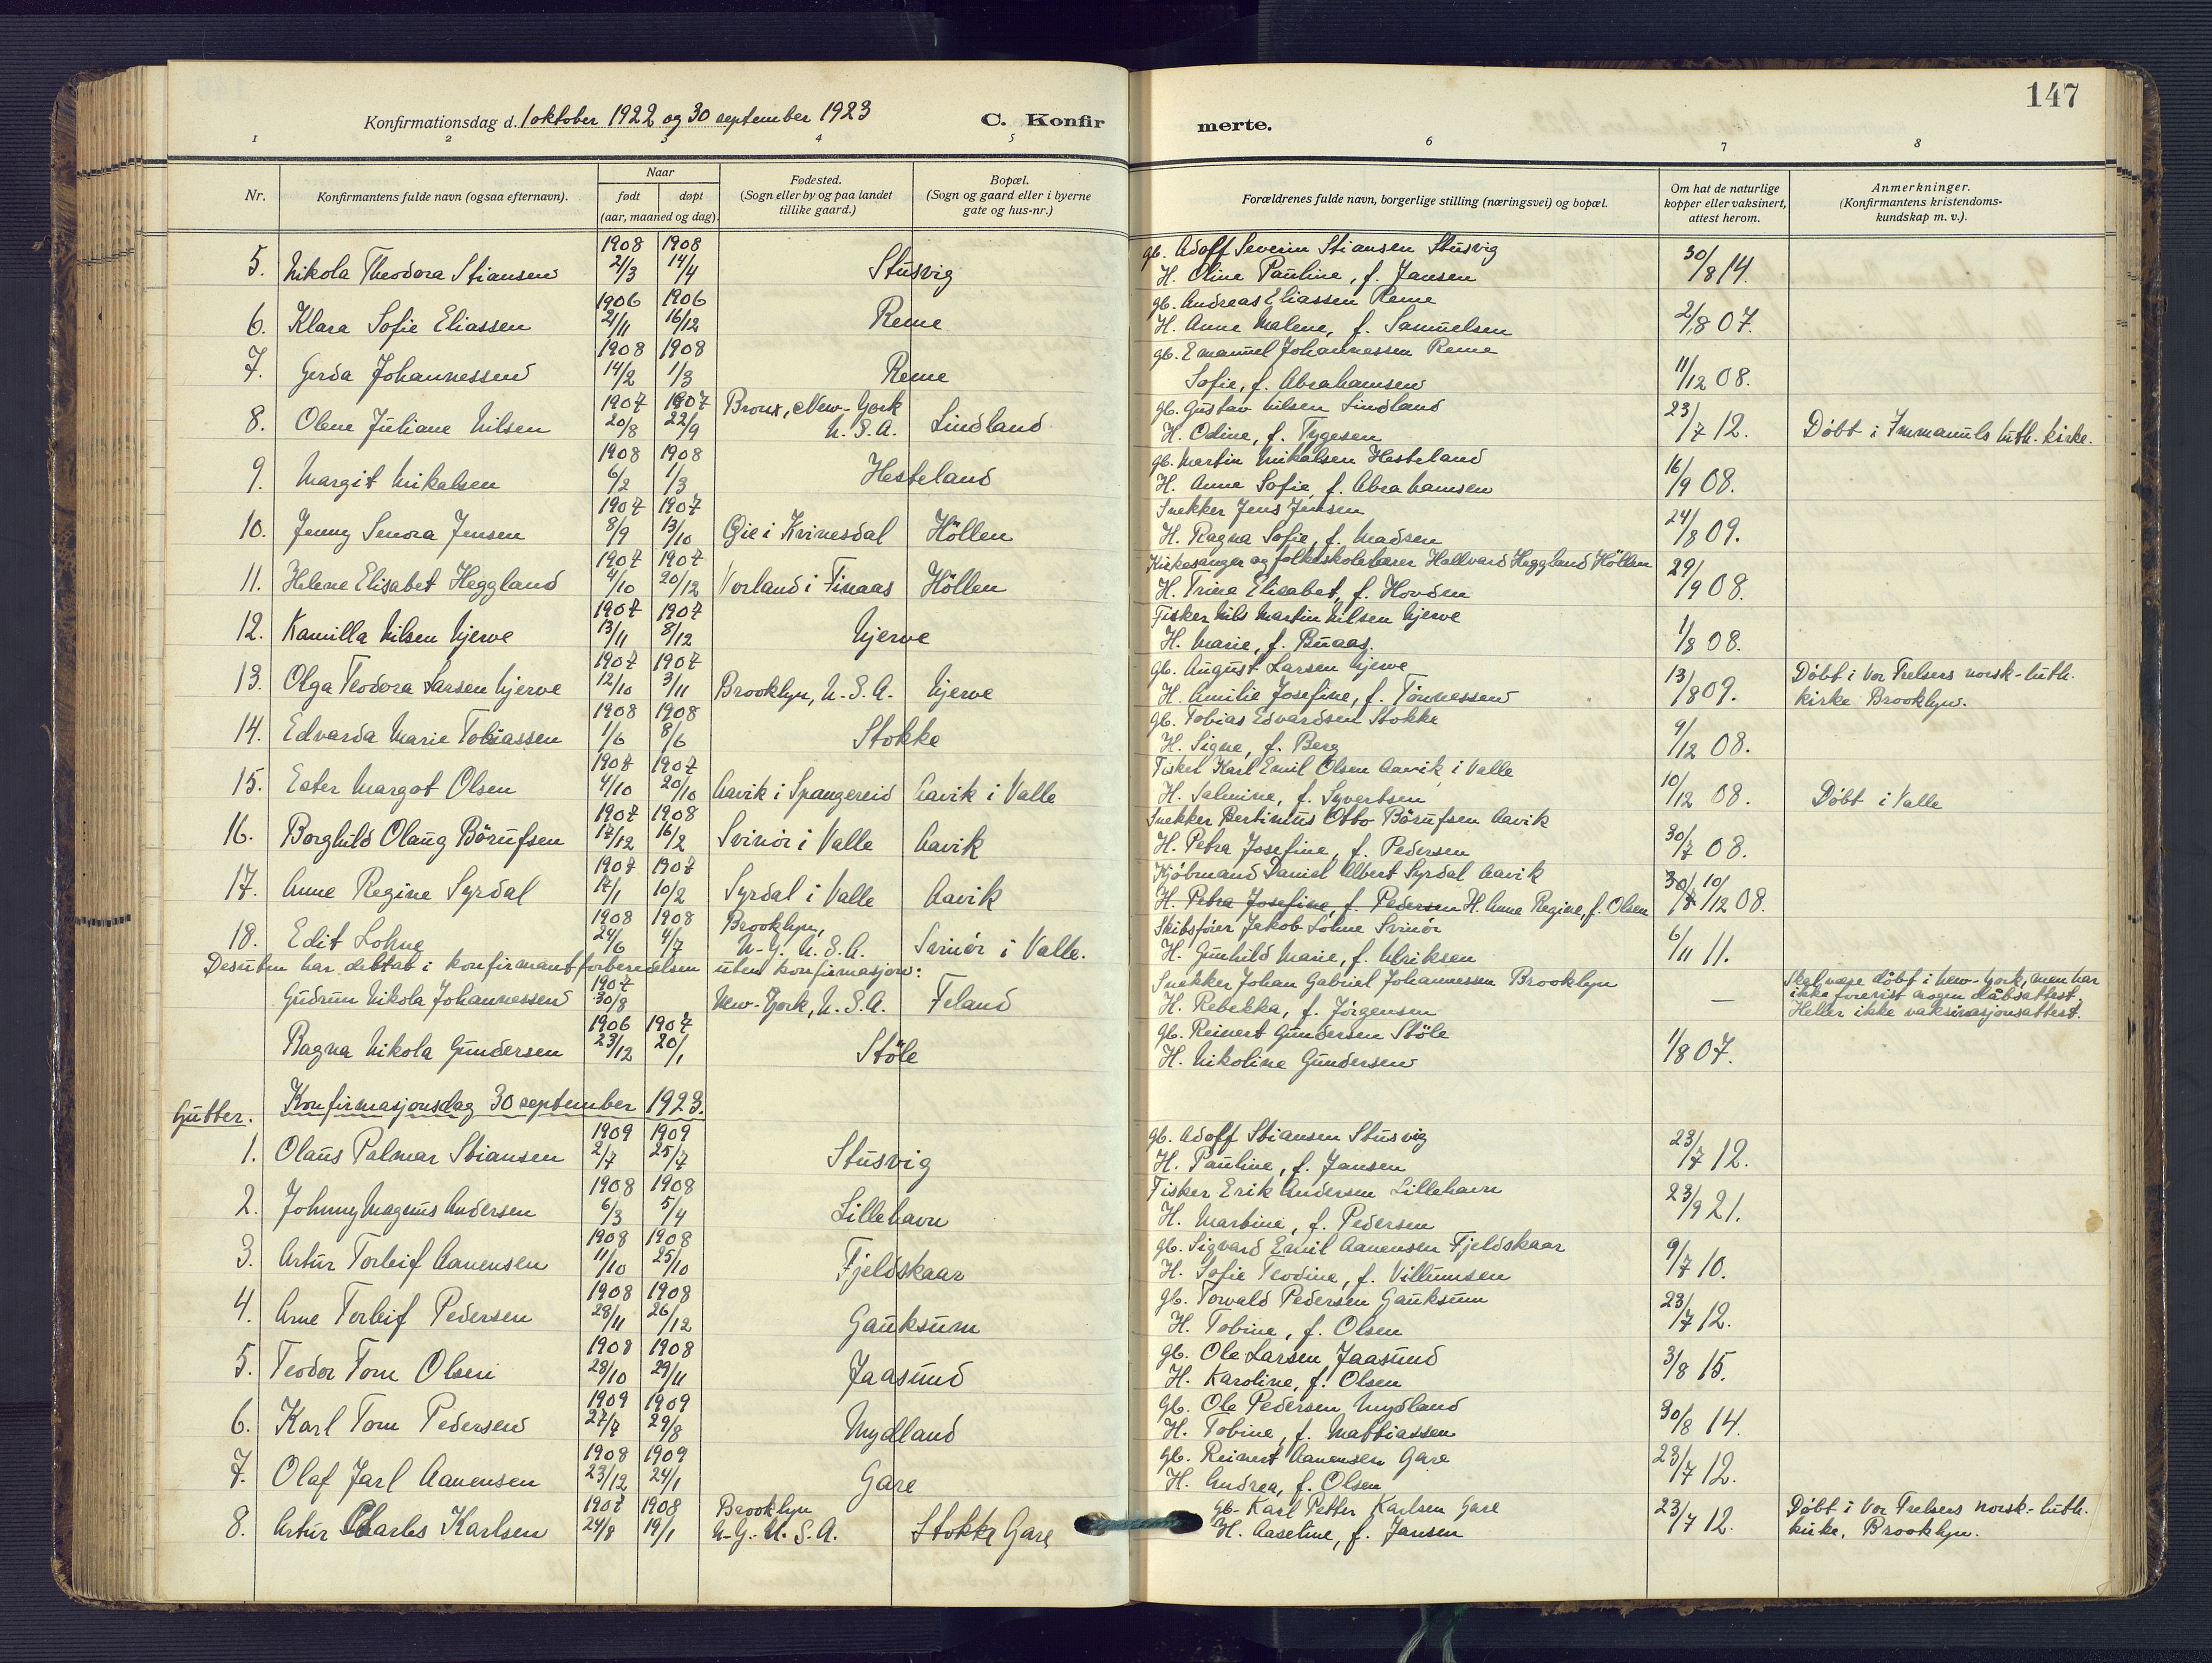 147
Konfirmationsdag d. 1 oktober 1922 og 30 september 1923
C. Konfirmerte.
1 2 3 4 5 6 7 8
Nr.
Konfirmantens fulde navn (ogsaa efternavn).
Naar
født
døpt
(aar, maaned og dag).
Fødested.
(Sogn eller by og paa landet
tillike gaard.)
Bopæl.
(Sogn og gaard eller i byerne
gate og hus-nr.)
Forældrenes fulde navn, borgerlige stilling (næringsvei) og bopæl.
Om hat de naturlige
kopper eller vaksinert,
attest herom.
Anmerkninger.
(Konfirmantens kristendoms-
kundskap m. v.).
1908 1908 gb. Adolf Severin Stiansen Stusvig
5. Nikola Theodora Stiansen 2/3 14/4 Stusvig H. Oline Pauline, f. Jansen 30/8 14.
1906 1906 gb. Andreas Eliassen Reme
6. Klara Sofie Eliassen 21/11 16/12 Reme H. Anne Malene, f. Samuelsen 2/8 07.
1908 1908 gb. Emanuel Johannessen Reme
7. Gerda Johannessen 14/2 1/3 Reme Sofie, f. Abrahamsen 11/12 08.
1907 1907 Bronx, New-York gb. Gustav Nilsen Lindland
8. Olene Juliane Nilsen 20/8 22/9 U.S.A. Lindland H. Odine, f. Tygesen 23/7 12. Döbt i Immanuels luth. kirke.
1908 1908 gb. Martin Mikalsen Hesteland
9. Margit Mikalsen 6/2 1/3 Hesteland H. Anne Sofie, f. Abrahamsen 16/9 08.
1907 1907 Snekker Jens Jensen
10. Jenny Senora Jensen 8/9 13/10 Öie i Kvinesdal Höllen H. Ragna Sofie, f. Madsen 24/8 09.
1907 1907 Kirkesanger og folkeskolelærer Hallvard Heggland Höllen
11. Helene Elisabet Heggland 4/10 20/12 Vorland i Finaas Höllen H. Trine Elisabet, f. Hovden 29/9 08.
1907 1907 Fisker Nils Martin Nilsen Njerve
12. Kamilla Nilsen Njerve 13/11 8/12 Njerve H. Marie, f. Buaas. 1/8 08.
1907 1907 gb. August Larsen Njerve
13. Olga Teodora Larsen Njerve 12/10 3/11 Brooklyn, U.S.A. Njerve H. Amilie Josefine, f. Tönnessen 13/8 09. Döbt i Vor Frelsers norsk-luth.
kirke Brooklyn.
1908 1908 gb. Tobias Edvardsen Stokke
14. Edvarda Marie Tobiassen 1/6 8/6 Stokke H. Signe, f. Berg 9/12 08.
1907 1907 Fisker Karl Emil Olsen Aavik i Valle
15. Ester Margot Olsen 4/10 20/10 Aavik i Spangereid Aavik i Valle H. Salmine, f. Syvertsen 10/12 08. Döbt i Valle
1907 1908 Snekker Bertinius Otto Börufsen Aavik
16. Borghild Olaug Börufsen 17/12 16/2 Svinör i Valle Aavik H. Petra Josefine, f. Pedersen 30/7 08.
1907 1907 Kjöbmand Daniel Albert Syrdal Aavik
17. Anne Regine Syrdal 17/1 10/2 Syrdal i Valle Aavik H. Petra Josefine, f. Pedersen H. Anne Regine, f. Olsen 30/7 10/12 08.
1908 1908 Brooklyn, Skibsförer Jakob Lohne Svinör
18. Edit Lohne 24/6 4/7 N-Y. U.S.A. Svinör i Valle. H. Gunhild Marie, f. Ulriksen 6/11 11.
Desuten har deltat i konfirmantforberedelsen uten konfirmasjon:
1907 Snekker Johan Gabriel Johannessen Brooklyn
Gudrun Nikola Johannessen 30/8 New-York, U.S.A. Feland H. Rebekka, f. Jörgensen — Skal være döbt i New-York, men har
ikke forevist nogen dåbsattest.
Heller ikke vaksinasjonsattest.
1906 1907 gb. Reinert Gundersen Stöle
Ragna Nikola Gundersen 23/12 20/1 Stöle H. Nikoline Gundersen 1/8 07.
Gutter. Konfirmasjonsdag 30 september 1923.
1909 1909 gb. Adolf Stiansen Stusvig
1. Olaus Palmar Stiansen 2/7 25/7 Stusvig H. Pauline, f. Jansen 23/7 12.
1908 1908 Fisker Erik Andersen Lillehavn
2. Johnny Magnus Andersen 6/3 5/4 Lillehavn H. Martine, f. Pedersen 23/9 21.
1908 1908 gb. Sigvard Emil Aanensen Fjeldskaar
3. Artur Torleif Aanensen 11/10 25/10 Fjeldskaar H. Sofie Teodine, f. Villumsen 9/7 10.
1908 1908 gb. Torvald Pedersen Gauksum
4. Arne Torleif Pedersen 28/11 26/12 Gauksum H. Tobine, f. Olsen 23/7 12.
1908 1908 gb. Ole Larsen Jaasund
5. Teodor Tom Olsen 28/10 29/11 Jaasund H. Karoline, f. Olsen 3/8 15.
1909 1909 gb. Ole Pedersen Mydland
6. Karl Tom Pedersen 27/7 29/8 Mydland H. Tobine, f. Mattiassen 30/8 14.
1908 1909 gb. Reinert Aanensen Gare
7. Olaf Jarl Aanensen 23/12 24/1 Gare H. Andrea, f. Olsen 23/7 12.
1907 1908 Brooklyn gb. Karl Petter Karlsen Gare
8. Artur Charles Karlsen 24/8 19/1 N.Y. U.S.A. Stokke Gare H. Aaseline, f. Jansen 23/7 12. Döbt i Vor Frelsers norsk-luth.
kirke, Brooklyn.